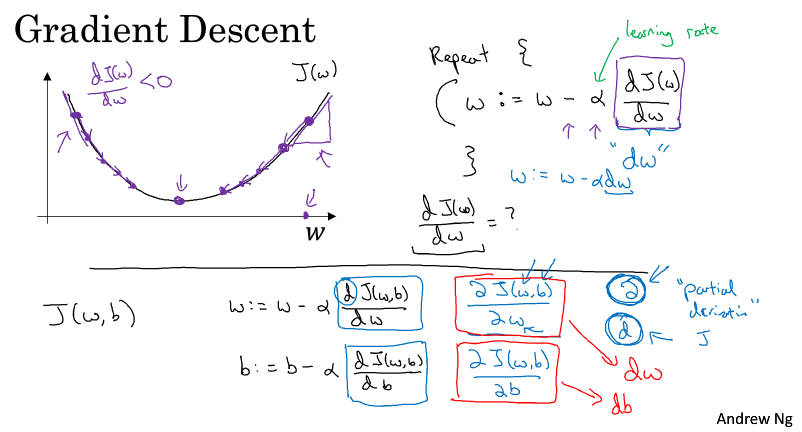 Gradient Descent
learning rate
Repeat {
dJ(w)/dw < 0
J(w)
w := w - α dJ(w)/dw
"dw"
}
w := w - α dw
w
dJ(w)/dw = ?
J(w,b)
w := w - α dJ(w,b)/dw
∂J(w,b)/∂w
∂
"partial
derivative"
d
J
b := b - α dJ(w,b)/db
∂J(w,b)/∂b
dw
db
Andrew Ng